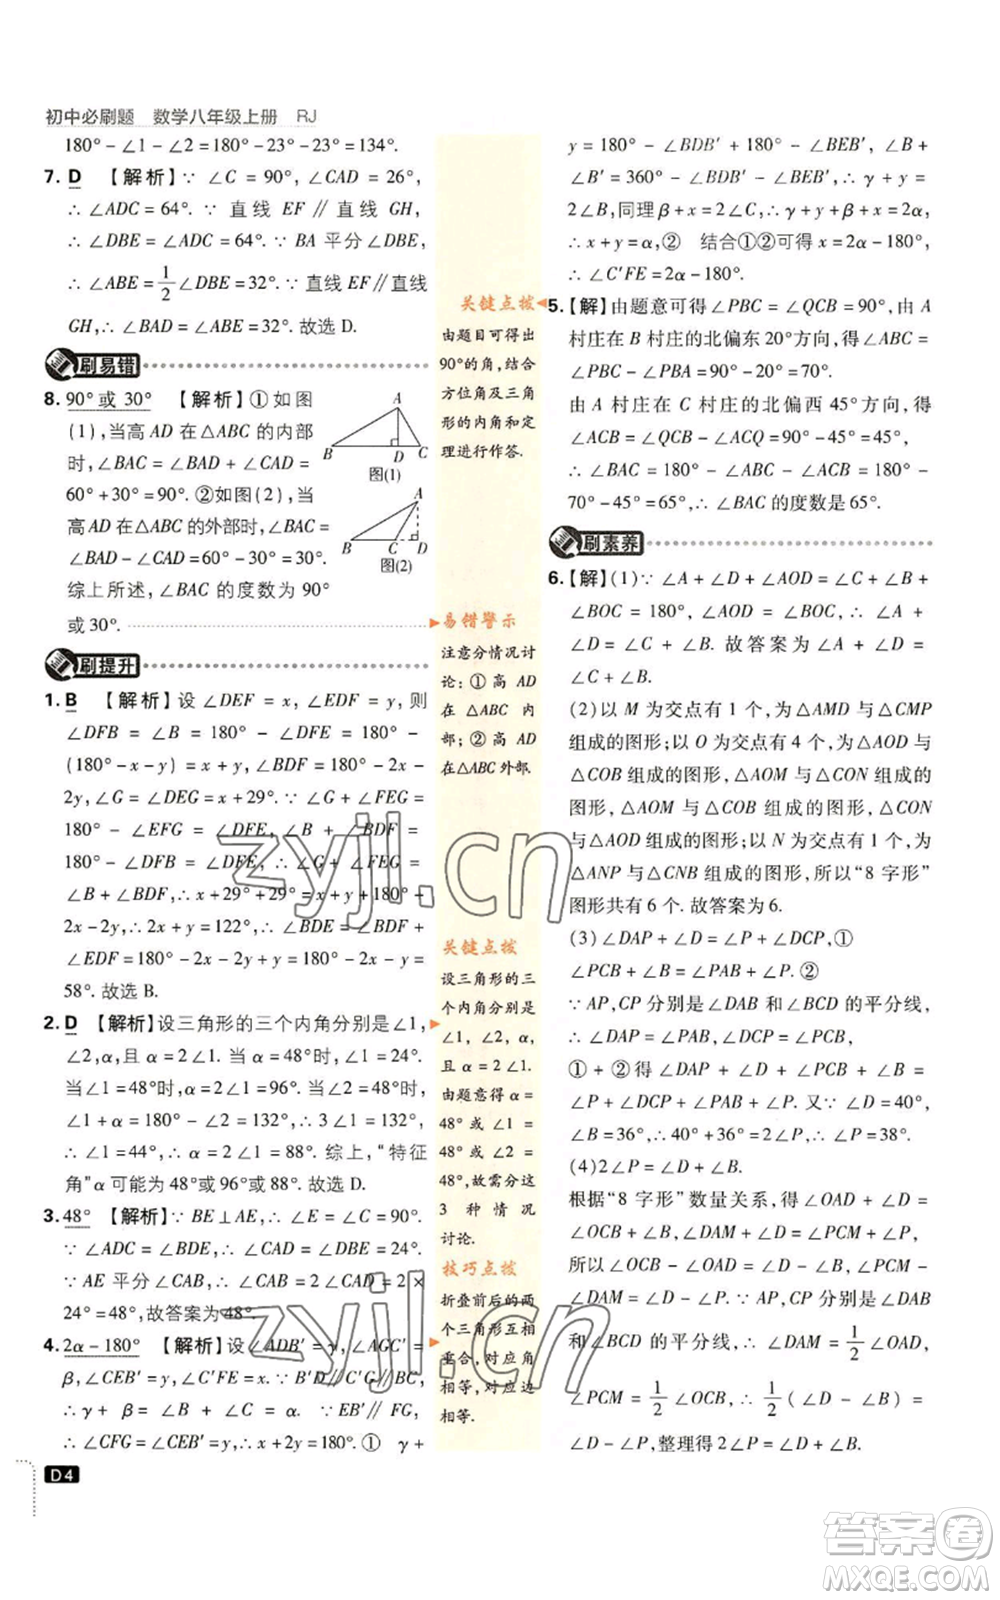 初中必刷题 数学八年级上册 RJ
180°－∠1－∠2＝180°－23°－23°＝134°.
7. D 【解析】∵ ∠C＝90°，∠CAD＝26°，
∴ ∠ADC＝64°. ∵ 直线 EF∥直线 GH，
∴ ∠DBE＝∠ADC＝64°. ∵ BA 平分∠DBE，
∴ ∠ABE＝1/2∠DBE＝32°. ∵ 直线 EF∥直线
GH，∴ ∠BAD＝∠ABE＝32°. 故选 D.
刷易错
8. 90° 或 30° 【解析】①如图
(1)，当高 AD 在△ABC 的内部
时，∠BAC＝∠BAD＋∠CAD＝
60°＋30°＝90°. ②如图(2)，当
高 AD 在△ABC 的外部时，∠BAC＝
∠BAD－∠CAD＝60°－30°＝30°.
综上所述，∠BAC 的度数为 90°
或 30°.
A
B D C
图(1)
A
B C D
图(2)
刷提升
1. B 【解析】设 ∠DEF＝x，∠EDF＝y，则
∠DFB＝∠B＝180°－∠DFE＝180°－
(180°－x－y)＝x＋y，∠BDF＝180°－2x－
2y，∠G＝∠DEG＝x＋29°. ∵ ∠FEG＝
∠B，∴ ∠EFG＝∠DFE，∠B＋∠BDF＝
180°－∠DFB＝180°－∠DFE，∴ ∠G＋∠FEG＝
∠B＋∠BDF，∴ x＋29°＋29°＝x＋y＋180°－
2x－2y，∴ x＋y＝122°，∴ ∠BDE＝∠BDF＋
∠EDF＝180°－2x－2y＋y＝180°－x－y＝
58°. 故选 B.
2. D 【解析】设三角形的三个内角分别是∠1，
∠2，α，且 α＝2∠1. 当 α＝48°时，∠1＝24°.
当∠1＝48°时，α＝2∠1＝96°. 当∠2＝48°时，
∠1＋α＝180°－∠2＝132°，即 3∠1＝132°，
∴ ∠1＝44°，α＝2∠1＝88°. 综上，“特征
角”α 可能为 48°或 96°或 88°. 故选 D.
3. 48° 【解析】∵ BE⊥AE，∴ ∠E＝∠C＝90°.
∵ ∠ADC＝∠BDE，∴ ∠CAD＝∠DBE＝24°.
∵ AE 平分∠CAB，∴ ∠CAB＝2∠CAD＝2×
24°＝48°，故答案为 48°.
4. 2α－180° 【解析】设∠ADB′＝γ，∠AGC′＝
β，∠CEB′＝y，∠C′FE＝x. ∵ B′D∥C′G，
∴ γ＋β＝∠B＋∠C＝α. ∵ EB′∥FG，
∴ ∠CFG＝∠CEB′＝y，∴ x＋2y＝180°. ① γ＋
D4
关键点拨
由题目可得出
90°的角，结合
方位角及三角
形的内角和定
理进行作答.
易错警示
注意分情况讨
论：①高 AD
在△ABC 内
部；②高 AD
在△ABC 外部.
关键点拨
设三角形的三
个内角分别是
∠1，∠2，α，
且 α＝2∠1.
由题意得 α＝
48° 或 ∠1＝
48° 或 ∠2＝
48°，故需分这
3 种情况
讨论.
技巧点拨
折叠前后的两
个三角形互相
重合，对应角
相等，对应边
相等.
y＝180°－∠BDB′＋180°－∠BEB′，∠B＋
∠B′＝360°－∠BDB′－∠BEB′，∴ γ＋y＝
2∠B，同理 β＋x＝2∠C，∴ γ＋y＋β＋x＝2α，
∴ x＋y＝α，② 结合①②可得 x＝2α－180°，
∴ ∠C′FE＝2α－180°.
5.【解】由题意可得∠PBC＝∠QCB＝90°，由 A
村庄在 B 村庄的北偏东 20°方向，得∠ABC＝
∠PBC－∠PBA＝90°－20°＝70°.
由 A 村庄在 C 村庄的北偏西 45°方向，得
∠ACB＝∠QCB－∠QCA＝90°－45°＝45°，
∴ ∠BAC＝180°－∠ABC－∠ACB＝180°－
70°－45°＝65°，∴ ∠BAC 的度数是 65°.
刷素养
6.【解】(1)∵ ∠A＋∠D＋∠AOD＝∠C＋∠B＋
∠BOC＝180°，∠AOD＝∠BOC，∴ ∠A＋
∠D＝∠C＋∠B. 故答案为∠A＋∠D＝∠C＋
∠B.
(2)以 M 为交点有 1 个，为△AMD 与△CMP
组成的图形；以 O 为交点有 4 个，为△AOD 与
△COB 组成的图形，△AOM 与△CON 组成的
图形，△AOM 与△COB 组成的图形，△CON
与△AOD 组成的图形；以 N 为交点有 1 个，为
△ANP 与△CNB 组成的图形，所以“8 字形”
图形共有 6 个. 故答案为 6.
(3)∠DAP＋∠D＝∠P＋∠DCP，①
∠PCB＋∠B＝∠PAB＋∠P. ②
∵ AP，CP 分别是∠DAB 和∠BCD 的平分线，
∴ ∠DAP＝∠PAB，∠DCP＝∠PCB，
①＋②得∠DAP＋∠D＋∠PCB＋∠B＝
∠P＋∠DCP＋∠PAB＋∠P. 又∵∠D＝40°，
∠B＝36°，∴ 40°＋36°＝2∠P，∴ ∠P＝38°.
(4)2∠P＝∠B＋∠D.
根据“8 字形”数量关系，得 ∠OAD＋∠D＝
∠OCB＋∠B，∠DAM＋∠D＝∠PCM＋∠P，
所以∠OCB－∠OAD＝∠D－∠B，∠PCM－
∠DAM＝∠D－∠P. ∵ AP，CP 分别是∠DAB
和∠BCD 的平分线，∴ ∠DAM＝1/2∠OAD，
∠PCM＝1/2∠OCB，∴ 1/2(∠D－∠B)＝
∠D－∠P，整理得 2∠P＝∠B＋∠D.
zyjl.cn
zyjl.cn
答案圈
MXQE.COM